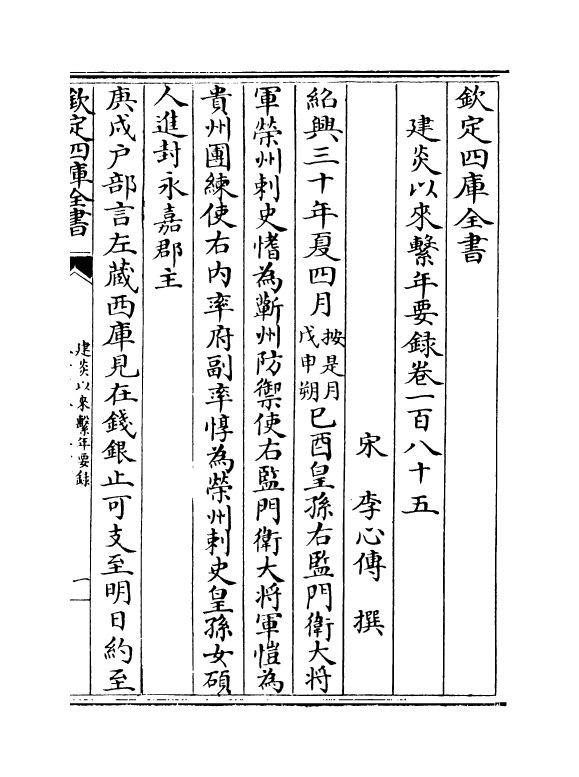 欽定四庫全書
建炎以來繫年要録卷一百八十五
宋 李心傳 撰
紹興三十年夏四月按是月戊申朔己酉皇孫右監門衛大將
軍榮州刺史愭為蘄州防禦使右監門衛大將軍愷為
貴州團練使右内率府副率惇為榮州刺史皇孫女碩
人進封永嘉郡主
庚戌户部言左藏西庫見在錢銀止可支至明日約至
欽定四庫全書
建炎以來繫年要録
一